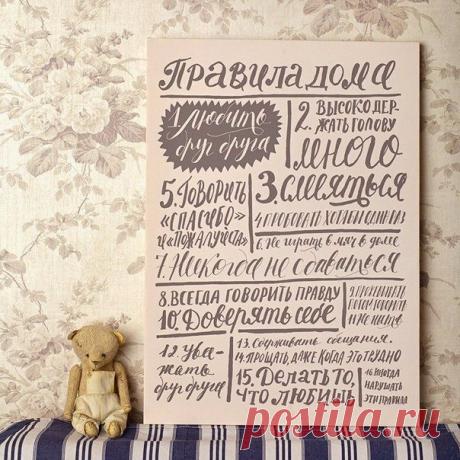 Правила дома
1. Любить
друг друга
2. Высоко дер-
жать голову
много
3. Смеяться
4. Пробовать хотя бы один раз
5. Говорить
«спасибо»
и «пожалуйста»
6. Не играть в мяч в доме
7. Никогда не сдаваться
8. Всегда говорить правду
10. Доверять себе
12. Ува-
жать
друг друга
13. Сдерживать обещания.
14. Прощать, даже когда это трудно
15. Делать то,
что любишь
16. Иногда
нарушать
эти правила
postila.ru